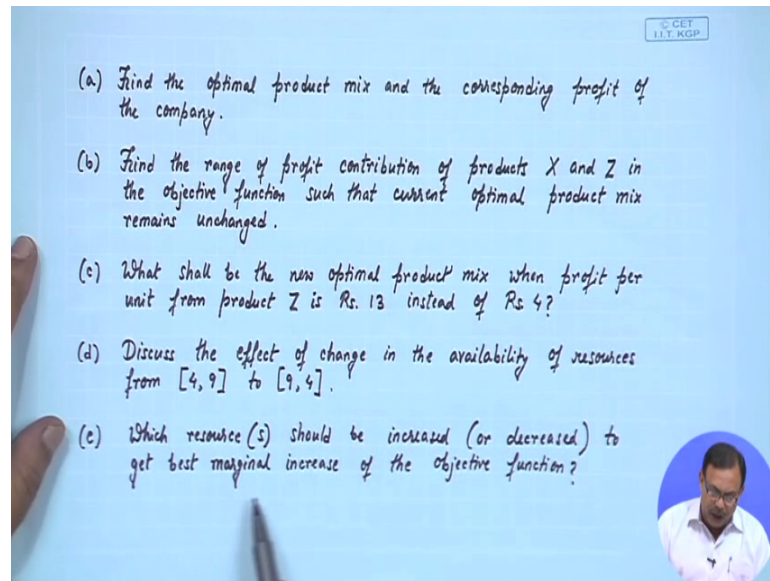 © CET
I.I.T. KGP
(a) Find the optimal product mix and the corresponding profit of
the company.
(b) Find the range of profit contribution of products X and Z in
the objective function such that current optimal product mix
remains unchanged.
(c) What shall be the new optimal product mix when profit per
unit from product Z is Rs. 13 instead of Rs 4?
(d) Discuss the effect of change in the availability of resources
from [4, 9] to [9, 4].
(e) Which resource (s) should be increased (or decreased) to
get best marginal increase of the objective function?